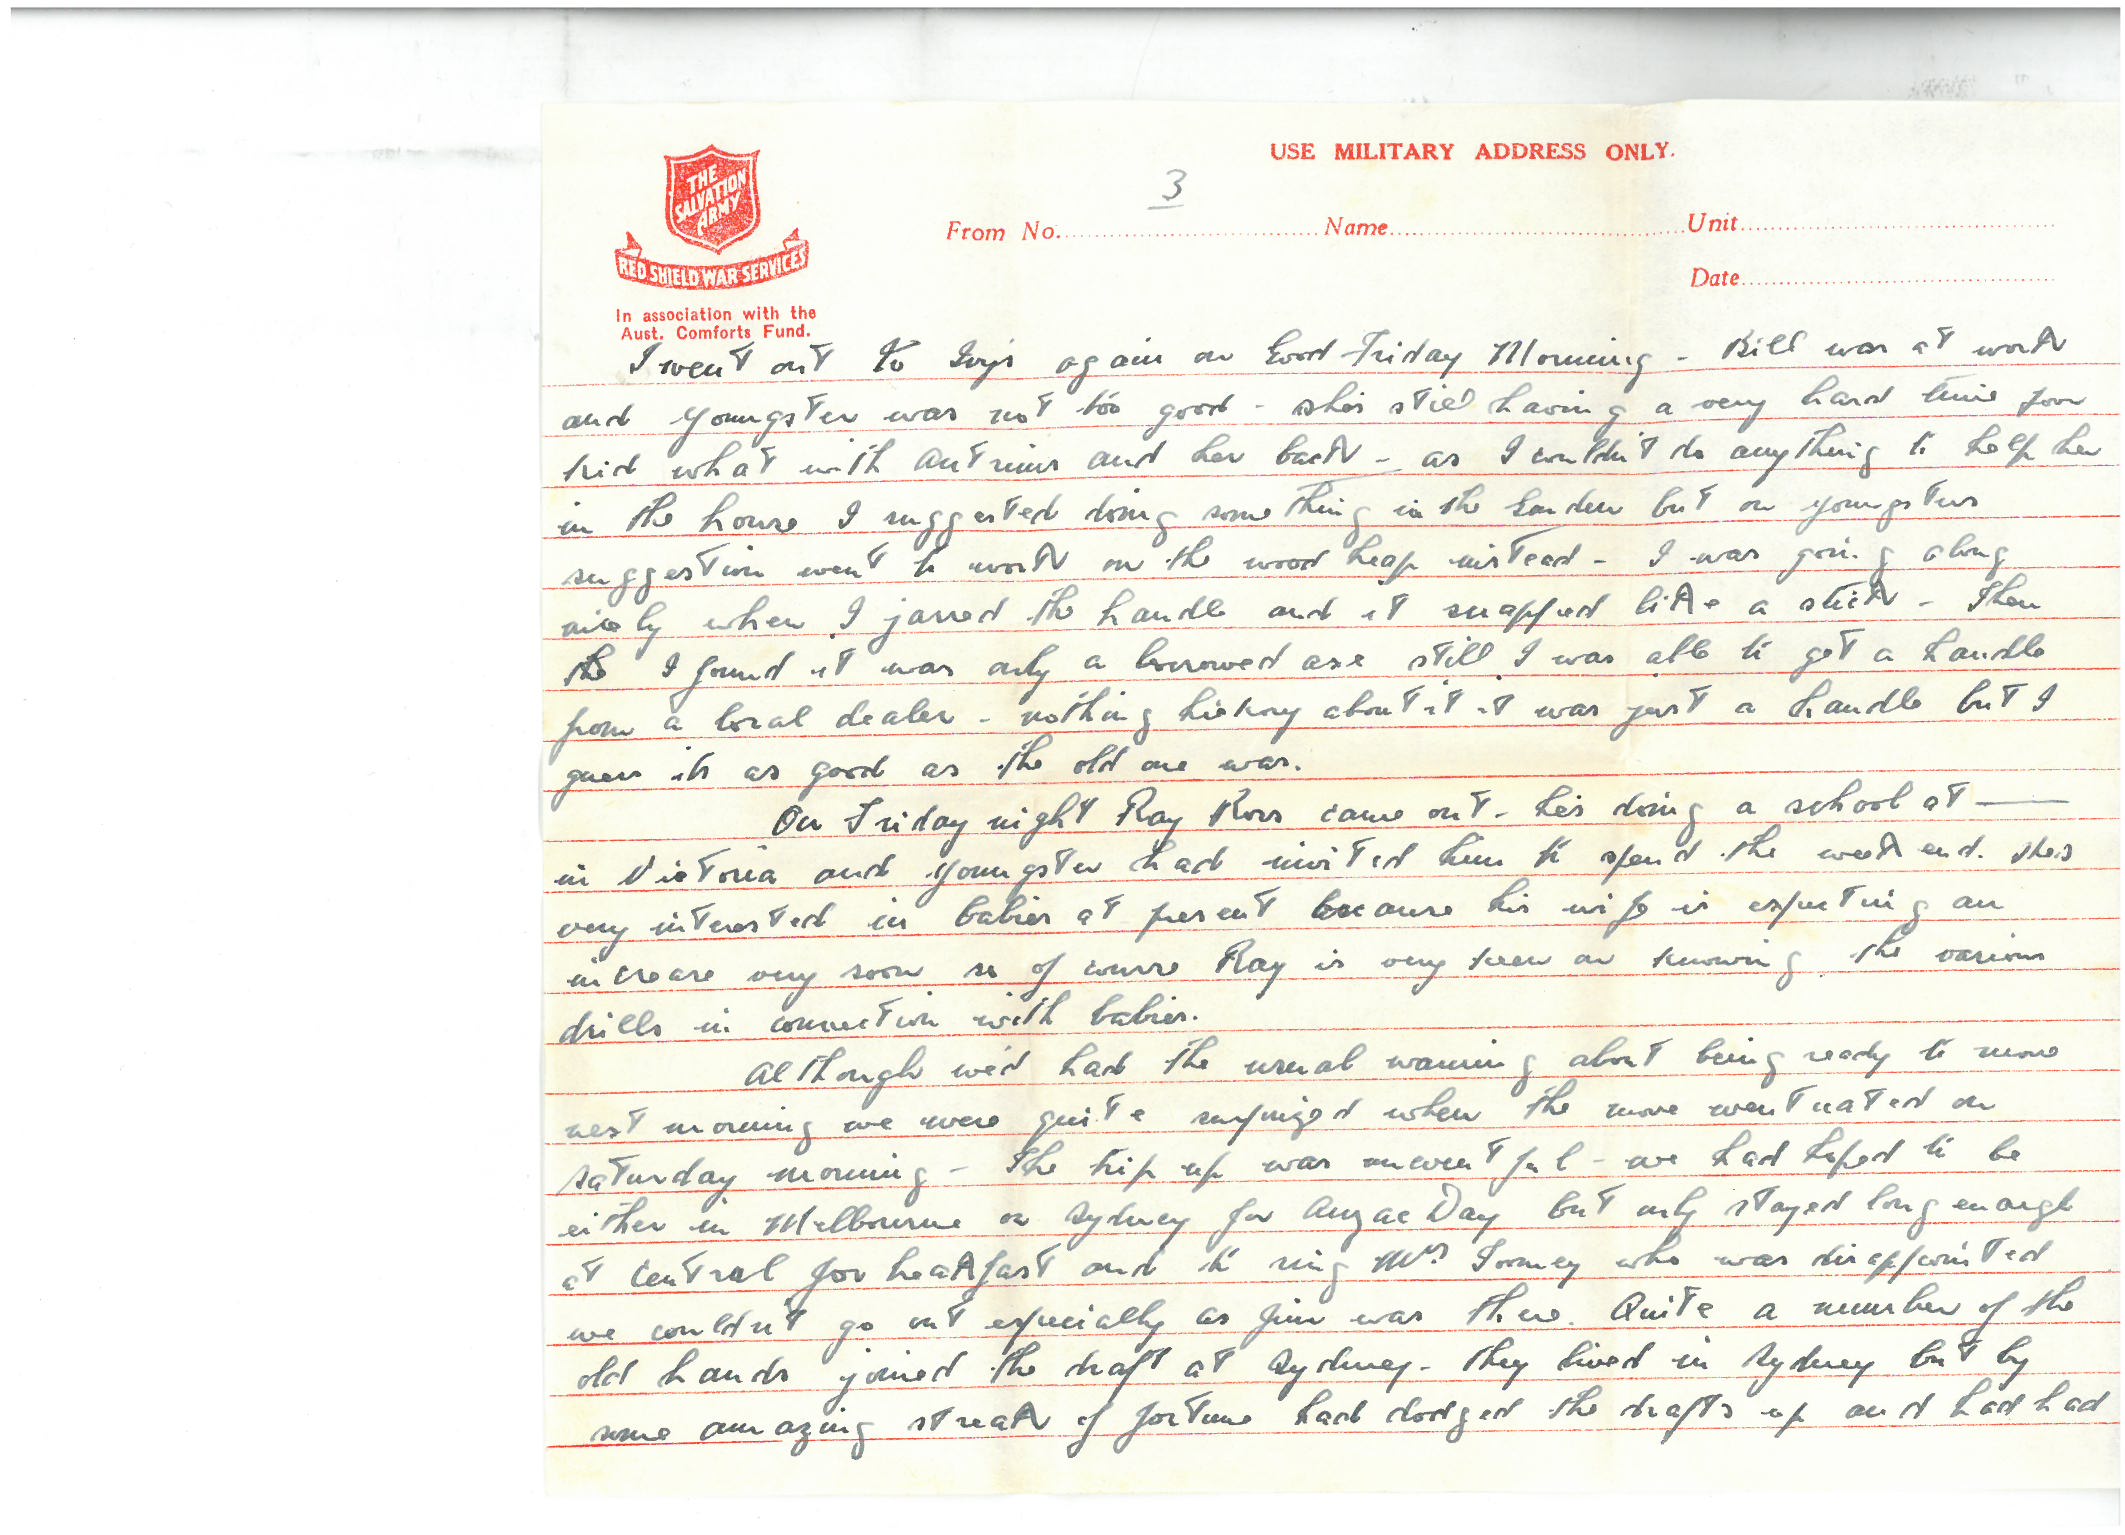 USE MILITARY ADDRESS ONLY.
THE
SALVATION
ARMY
RED SHIELD WAR SERVICES
In association with the
Aust. Comforts Fund.
3
From No. Name Unit
Date
I went out to Ivy's again on Good Friday Morning - Bill was at work
and Youngster was not too good - she's still having a very hard time poor
kid what with and her back - as I couldn't do anything to help her
in the house I suggested doing something in the Garden but on youngsters
suggestion went to work on the wood heap instead - I was going along
nicely when I jarred the handle and it snapped like a stick - Then
the I found it was only a borrowed axe still I was able to get a handle
from a local dealer - nothing hickory about it it was just a handle but I
guess its as good as the old one was.
On Friday night Ray Ross came out - he's doing a school at ——
in Victoria and Youngster had invited him to spend the week end.
very interested in babies at present because his wife is expecting an
increase very soon so of course Ray is very keen on knowing the various
drills in connection with babies.
Although we'd had the usual warning about being ready to move
next morning we were quite surprized when the move on
Saturday morning - The trip up was uneventful - we had hoped to be
either in Melbourne or Sydney for Anzac Day but only stayed long enough
at Central for breakfast and to ring Mrs Toomey who was disappointed
we couldn't go out especially as Jim was there. Quite a number of the
old hands joined the draft at Sydney - they lived in Sydney but by
some amazing streak of fortune had dodged the drafts up and had had